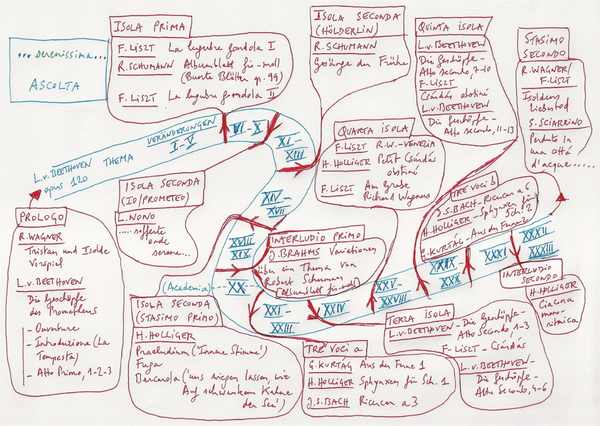 ...serenissima...
ASCOLTA
ISOLA PRIMA
F. LISZT La lugubre gondola I
R. SCHUMANN Albumblatt fis-moll
(Bunte Blätter op. 99)
F. LISZT La lugubre gondola II
ISOLA SECONDA
(HÖLDERLIN)
R. SCHUMANN
Gesänge der Frühe
QUINTA ISOLA
L.v.BEETHOVEN
Die Geschöpfe-
Atto secondo, 7-10
F. LISZT
Csárdás obstiné
L.v.BEETHOVEN
Die Geschöpfe-
Atto secondo, 11-13
STASIMO
SECONDO
R. WAGNER/
F. LISZT
Isoldens
Liebestod
S. SCIARRINO
Perduto in
una città
d'acque.....
QUARTA ISOLA
F. LISZT R.W.-VENEZIA
H. HOLLIGER Petit Csárdás
obstiné
F. LISZT Am Grabe
Richard Wagners
L.v.BEETHOVEN THEMA
opus 120
VERÄNDERUNGEN
I-V
VI-X
XI-
XIII
XIV-
XVII
XVIII
XIX
XX
XXI-
XXIII
XXIV
XXV-
XXVIII
XXIX
XXX
XXXI
XXXII
XXXIII
(Academia)
PROLOGO
R. WAGNER
Tristan und Isolde
Vorspiel
L.v.BEETHOVEN
Die Geschöpfe
des Prometheus
- Ouverture
- Introduzione (La
Tempesta)
- Atto Primo, 1-2-3
ISOLA SECONDA
(IO/PROMETEO)
L. NONO
.....sofferte
onde
serene...
INTERLUDIO PRIMO
J. BRAHMS Variationen
über ein Thema von
Robert Schumann
(Albumblatt fis-moll)
TRE VOCI b
J.S. BACH - Ricercar a 6
H. HOLLIGER - Sphynxen für
Sch. 2
G. KURTAG - Aus der Ferne 2
ISOLA SECONDA
(STASIMO PRIMO)
H. HOLLIGER
Praeludium ('Innere Stimme')
Fuga
Barcarola ('uns wiegen lassen, wie
Auf schwankem Kahne
der See')
TRE VOCI a
G. KURTAG Aus der Ferne 1
H. HOLLIGER Sphynxen für Sch. 1
J.S. BACH Ricercar a 3
TERZA ISOLA
L.v.BEETHOVEN - Die Geschöpfe-
Atto Secondo 1-3
F. LISZT - Csárdás
L.v.BEETHOVEN-
Die Geschöpfe-
Atto Secondo, 4-6
INTERLUDIO
SECONDO
H. HOLLIGER
Ciacona
mono-
ritmica